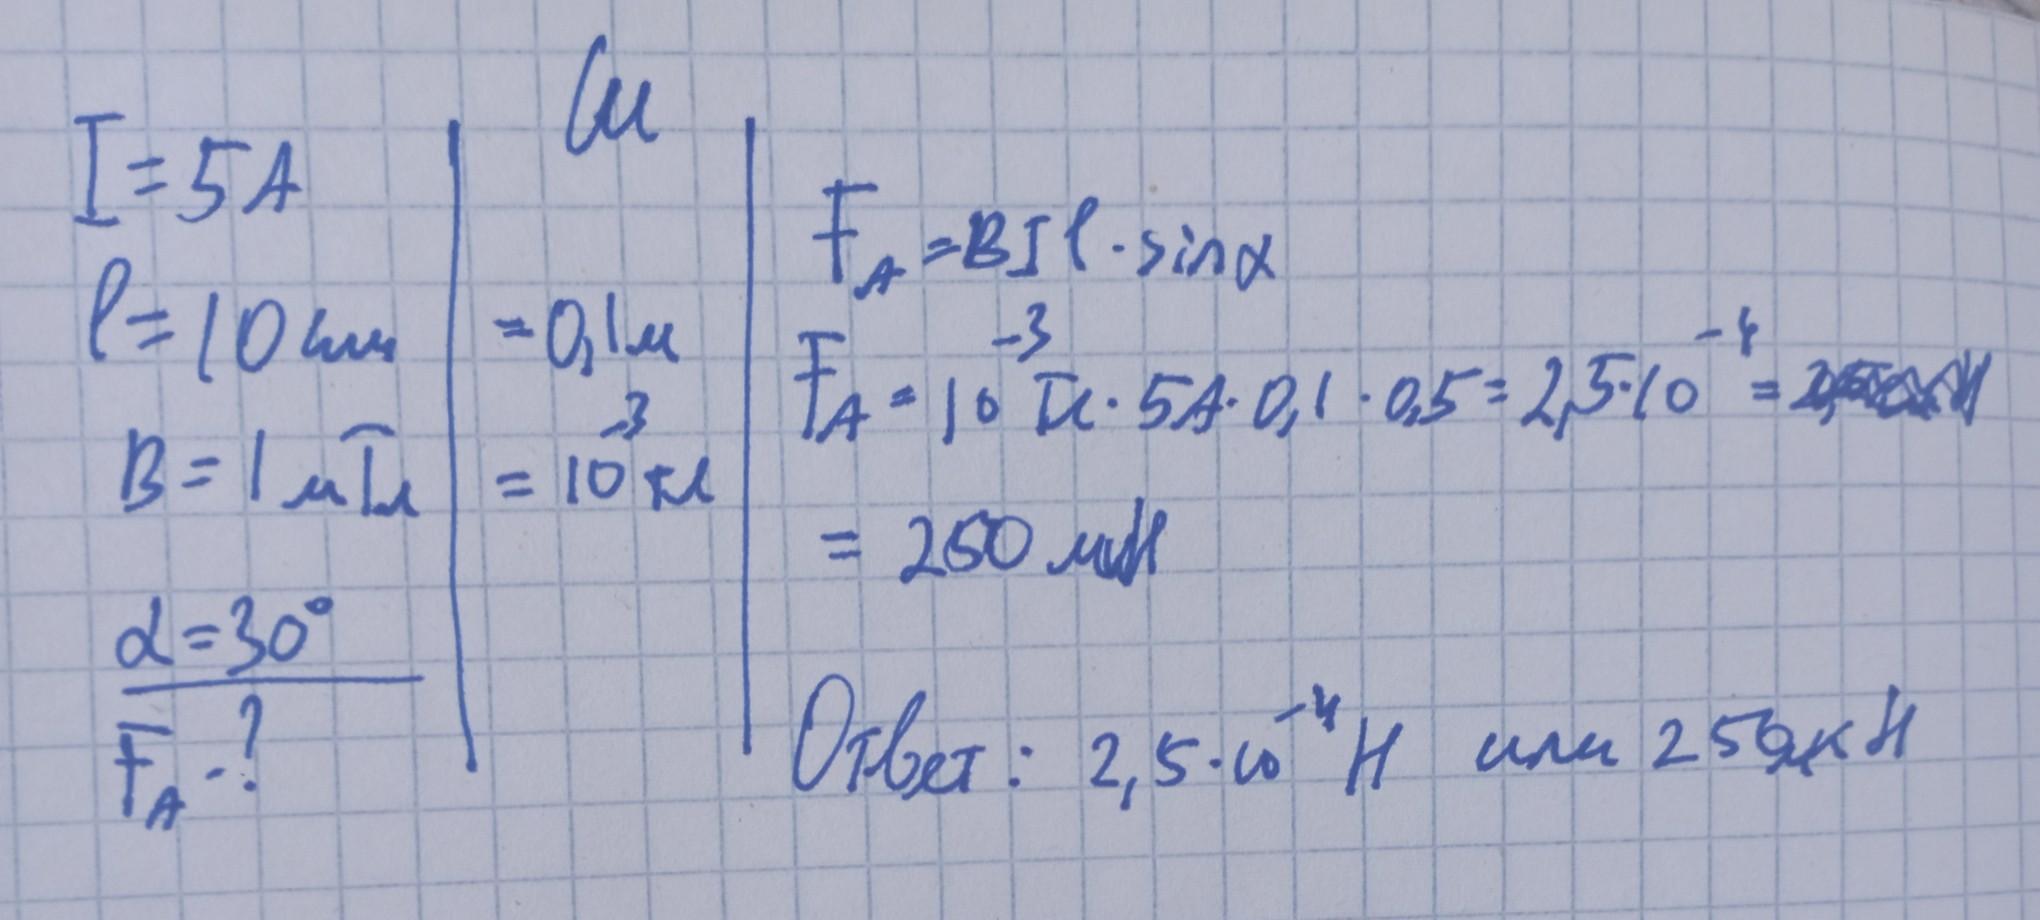 I = 5A
l = 10 см
B = 1 мТл
α = 30°
F_A - ?
Си
= 0,1 м
= 10^-3 Тл
F_A = BIl · sin α
F_A = 10^-3 Тл · 5A · 0,1 · 0,5 = 2,5 · 10^-4 =
= 250 мкН
Ответ: 2,5 · 10^-4 Н или 250мкН